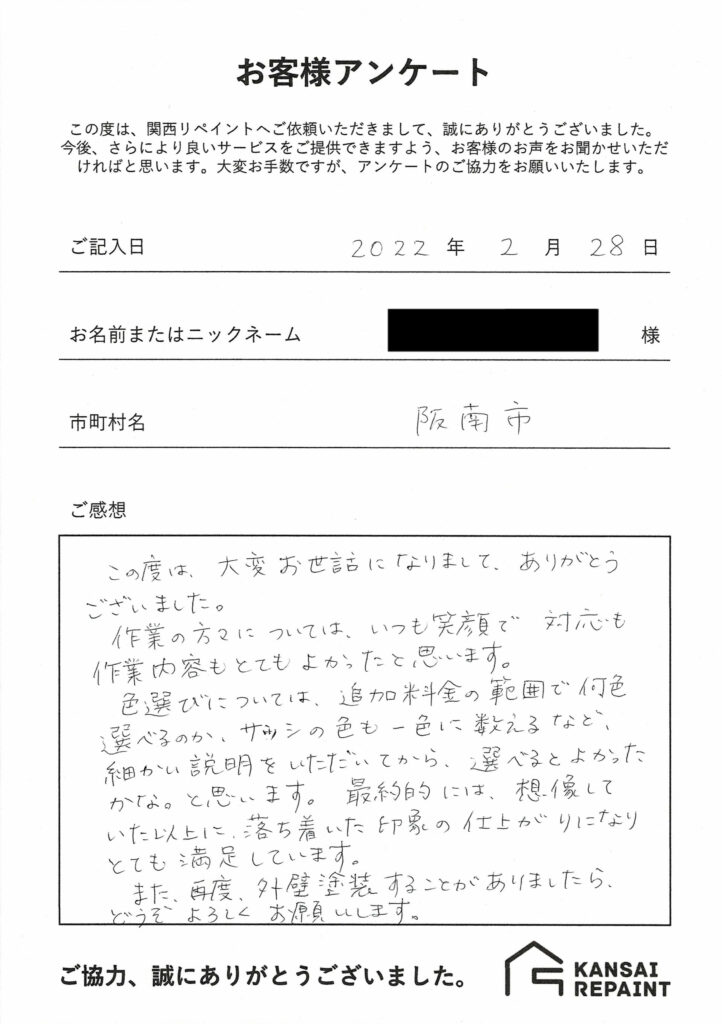 お客様アンケート
この度は、関西リペイントへご依頼いただきまして、誠にありがとうございました。
今後、さらにより良いサービスをご提供できますよう、お客様のお声をお聞かせいただ
ければと思います。大変お手数ですが、アンケートのご協力をお願いいたします。
ご記入日 2022 年 2 月 28 日
お名前またはニックネーム 様
市町村名 阪南市
ご感想
この度は、大変お世話になりまして、ありがとう
ございました。
作業の方々については、いつも笑顔で 対応も
作業内容もとてもよかったと思います。
色選びについては、追加料金の範囲で何色
選べるのか、サッシの色も一色に数えるなど、
細かい説明をいただいてから、選べるとよかった
かな。と思います。最約的には、想像して
いた以上に、落ち着いた印象の仕上がりになり
とても満足しています。
また、再度、外壁塗装することがありましたら、
どうぞよろしくお願いします。
ご協力、誠にありがとうございました。
KANSAI
REPAINT